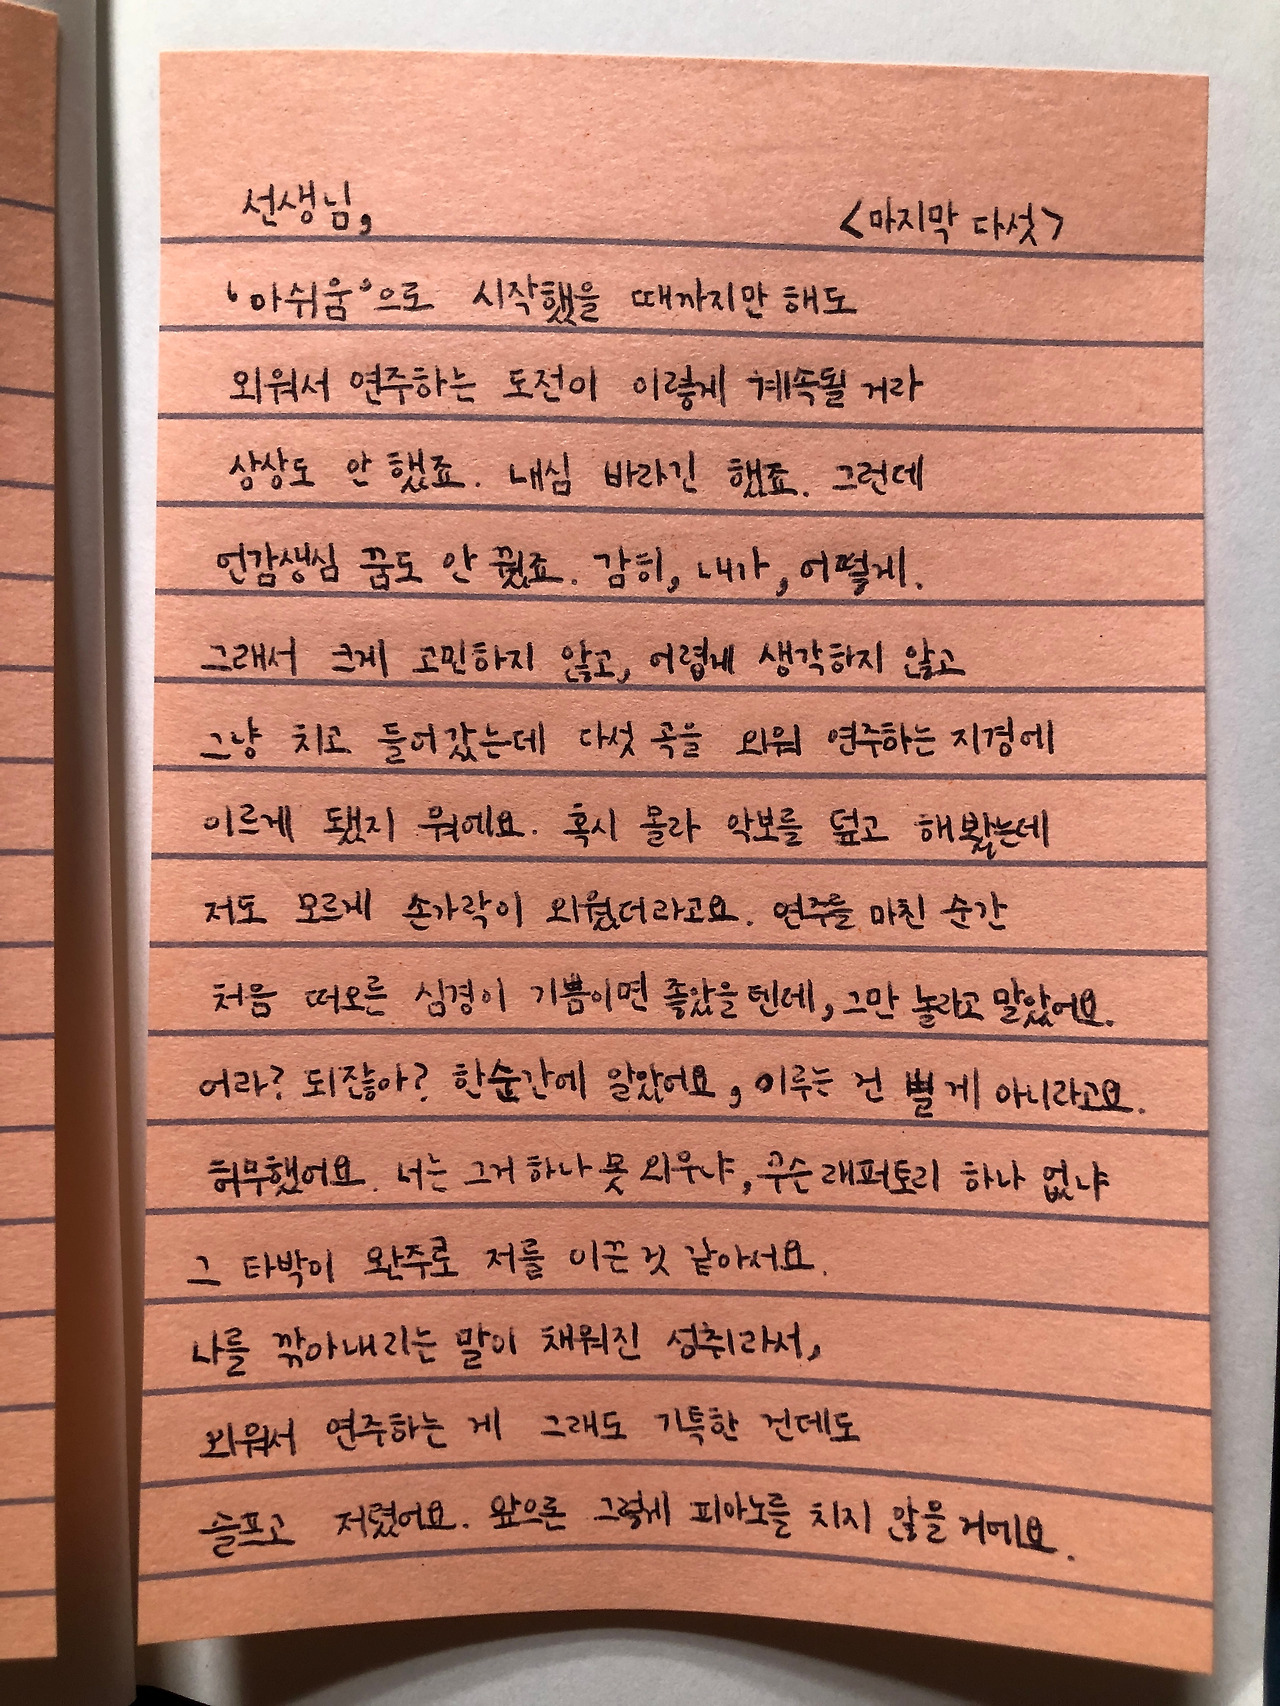 선생님, <마지막 다섯>
'아쉬움'으로 시작했을 때까지만 해도
외워서 연주하는 도전이 이렇게 계속될 거라
상상도 안 했죠. 내심 바라긴 했죠. 그런데
언감생심 꿈도 안 꿨죠. 감히, 내가, 어떻게.
그래서 크게 고민하지 않고, 어렵게 생각하지 않고
그냥 치고 들어갔는데 다섯 곡을 외워 연주하는 지경에
이르게 됐지 뭐에요. 혹시 몰라 악보를 덮고 해봤는데
저도 모르게 손가락이 외웠더라고요. 연주를 마친 순간
처음 떠오른 심경이 기쁨이면 좋았을텐데, 그만 놀라고 말았어요.
어라? 되잖아? 한순간에 알았어요, 이루는 건 별 게 아니라고요.
허무했어요. 너는 그거 하나 못 외우냐, 무슨 래퍼토리 하나 없냐
그 타박이 완주로 저를 이끈 것 같아서요.
나를 깎아내리는 말이 채워진 성취라서,
외워서 연주하는 게 그래도 기특한 건데도
슬프고 저렸어요. 앞으론 그렇게 피아노를 치지 않을 거에요.